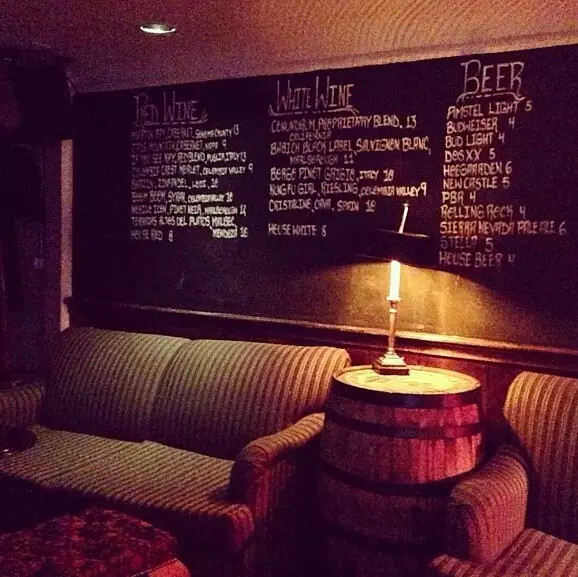 RED WINE
CABERNET, SONOMA COUNTY 13
CABERNET, NAPA 9
IF YOU SEE KAY, RED BLEND, ITALY 13
COLUMBIA CREST MERLOT, COLUMBIA VALLEY 9
ZINFANDEL, LODI, 10
BOOM BOOM, SYRAH, COLUMBIA VALLEY 10
PINOT NOIR, MARLBOROUGH
TERRAZAS ALTOS DEL PLATA, MALBEC,
MENDOZA 10
HOUSE RED 8
WHITE WINE
CONUNDRUM, PROPRIETARY BLEND, 13
CALIFORNIA
BABICH BLACK LABEL SAUVIGNON BLANC,
MARLBOROUGH 11
PINOT GRIGIO, ITALY 10
KUNG FU GIRL, RIESLING, COLUMBIA VALLEY 9
CRISTALINE, CAVA, SPAIN 10
HOUSE WHITE 8
BEER
AMSTEL LIGHT 5
BUDWEISER 4
BUD LIGHT 4
DOS XX 5
HOEGAARDEN 6
NEW CASTLE 5
PBR 4
ROLLING ROCK 4
SIERRA NEVADA PALE ALE 6
STELLA 5
HOUSE BEER 4